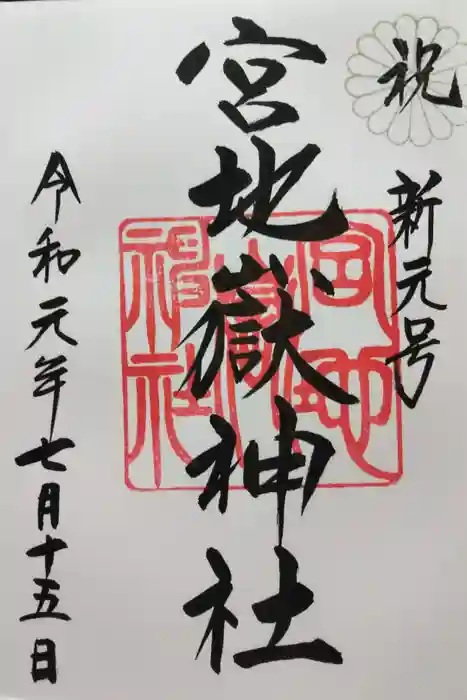 祝
新元号
宮地嶽神社
令和元年七月十五日
宮地嶽神社